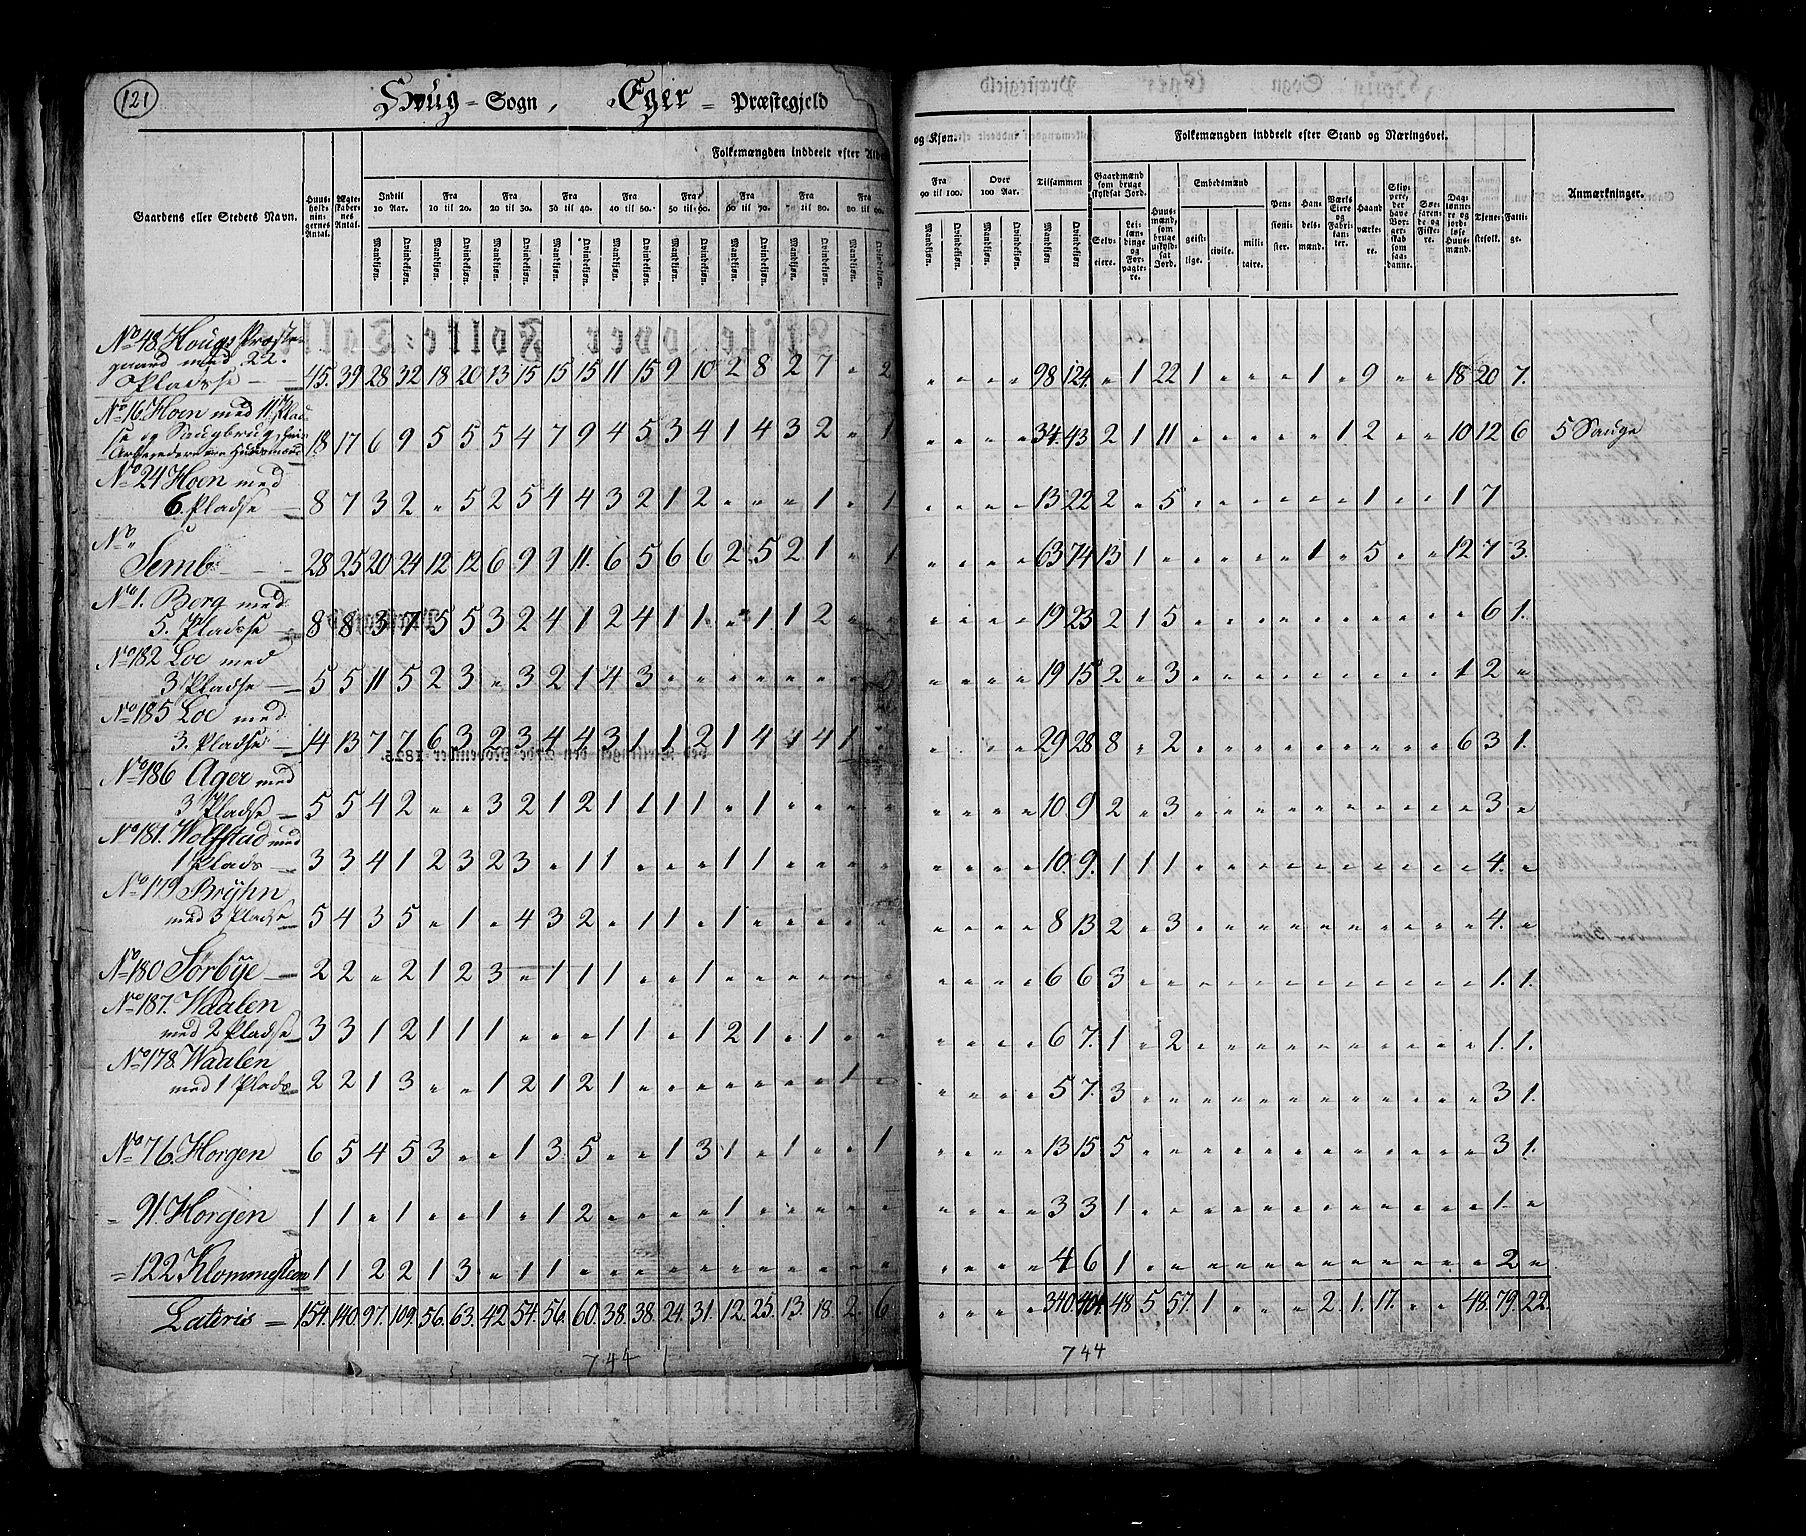 121
Houg - Sogn, Eger - Præstegjeld
Folkemængden inddeelt efter Alder og Kjøn.
Folkemængden inddeelt efter Stand og Næringsvei.
Gaardens eller Stedets Navn. Huusholdningernes Antal. Ægteskabernes Antal. Indtil 10 Aar. Fra 10 til 20. Fra 20 til 30. Fra 30 til 40. Fra 40 til 50. Fra 50 til 60. Fra 60 til 70. Fra 70 til 80. Fra 80 til 90. Fra 90 til 100. Over 100 Aar. Tilsammen
Mandkjøn. Qvindekjøn.
Gaardmænd som bruge skyldsat Jord. Selveiere. Leilændinge og Forpagtere. Huusmænd, som bruge uskyldsat Jord. Embedsmænd geistlige. civile. militaire. Pensionister. Handelsmænd. Værks Eiere og Fabrikanter. Haandværkere. Søefarende og Fiskere. Tjenestefolk. Fattige. Anmærkninger.
No 48. Hougs Præstegaard med 22. Pladse 45. 39 28 32 18 20 13 15 15 15 11 15 9 10 2 8 2 7 " 2 " " " " 98 124 " 1 22 1 " " " 1 " 9 " " 18 20 7.
No 16 Hoen med 11 Pladse og Saugbrug 18 17 6 9 5 5 5 4 7 9 4 5 3 4 1 4 3 2 " 1 " " " " 34 43 2 1 11 " " " " " 1 2 " " 10 12 6 5 Sauge
No 24 Hoen med
6. Pladse 8 7 3 2 " 5 2 5 4 4 3 2 1 2 " " " 1 " 1 " " " " 13 22 2 " 5 " " " " " " 1 " " 1 7
No "
Semb 28 25 20 24 12 12 6 9 9 11 6 5 6 6 2 5 2 1 " 1 " " " " 63 74 13 1 " " " " " 1 " 5 " " 12 7 3.
No 1. Berg med
5. Pladse 8 8 3 7 5 5 3 2 4 1 2 4 1 1 " 1 1 2 " " " " " " 19 23 2 1 5 " " " " " " " " " " 6 1.
No 182 Loe med
3 Pladse 5 5 11 5 2 3 " 3 2 1 4 3 " " " " " " " " " " " " 19 15 2 " 3 " " " " " " " " " 1 2 "
No 185 Loe med
3. Pladse 14 13 7 7 6 3 2 3 4 4 3 1 1 2 1 4 1 4 1 " " " " " 29 28 8 " 2 " " " " " " " " " 6 3 1.
No 186 Ager med
3 Pladse 5 5 4 2 " " 3 2 1 2 1 1 1 1 " 1 " " " " " " " " 10 9 2 " 3 " " " " " " " " " " 3 "
No 181. Wolfstad med
1 Plads 3 3 4 1 2 3 2 3 " 1 1 " " " 1 1 " " " " " " " " 10. 9. 1 1 1 " " " " " " " " " " 4. "
No 179 Bryhn
med 3 Pladse 5 4 3 5 " 1 " 4 3 2 " 1 1 " 1 " " " " " " " " " 8 13 2 " 3 " " " " " " " " " " 4. "
No 180 Sørbye 2 2 " 2 1 2 3 " 1 1 1 " " 1 " " " " " " " " " " 6 6 3 " " " " " " " " " " " " 1. 1.
No 187. Waalen
med 2 Pladse 3 3 1 2 1 1 1 " " " 1 1 " 1 2 1 " 1 " " " " " " 6 7. 1 " 2 " " " " " " " " " " 1. 1.
No 178. Waalen
med 1 Plads 2 2 1 3 " " 1 2 1 2 1 " " " " " " " 1 " " " " " 5 7. 3 " " " " " " " " " " " " 3 1.
No 76. Horgen 6 5 4 5 3 " " 1 3 5 " " 1 3 1 " 1 " " 1 " " " " 13 15 5 " " " " " " " " " " " " 3 1.
" 91. Horgen 1 1 " 1 " " 1 " 1 2 " " " " 1 " " " " " " " " " 3 3 1 " " " " " " " " " " " " 1 "
" 122 Klommesteen 1 1 2 2 1 3 " 1 1 " " " " " " " " " " " " " " " 4 6 1 " " " " " " " " " " " " 2 "
Lateris 154. 140. 97. 109. 56. 63. 42 54. 56. 60. 38. 38. 24. 31. 12. 25. 13. 18. 2. 6 " " " " 340. 404. 48. 5 57. 1 " " " 2. 1. 17. " " 48. 79. 22.
744
744